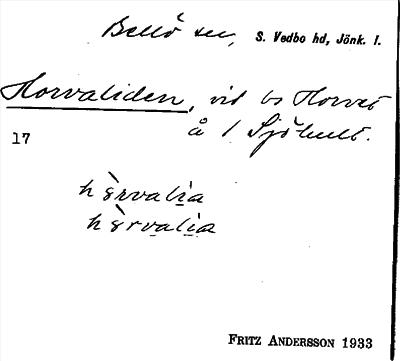 Bellö sn, S. Vedbo hd, Jönk. l.
Horvaliden, vid bs Horvet
å / Sjöhult.
17
hòrvalia
hòrvalia
FRITZ ANDERSSON 1933